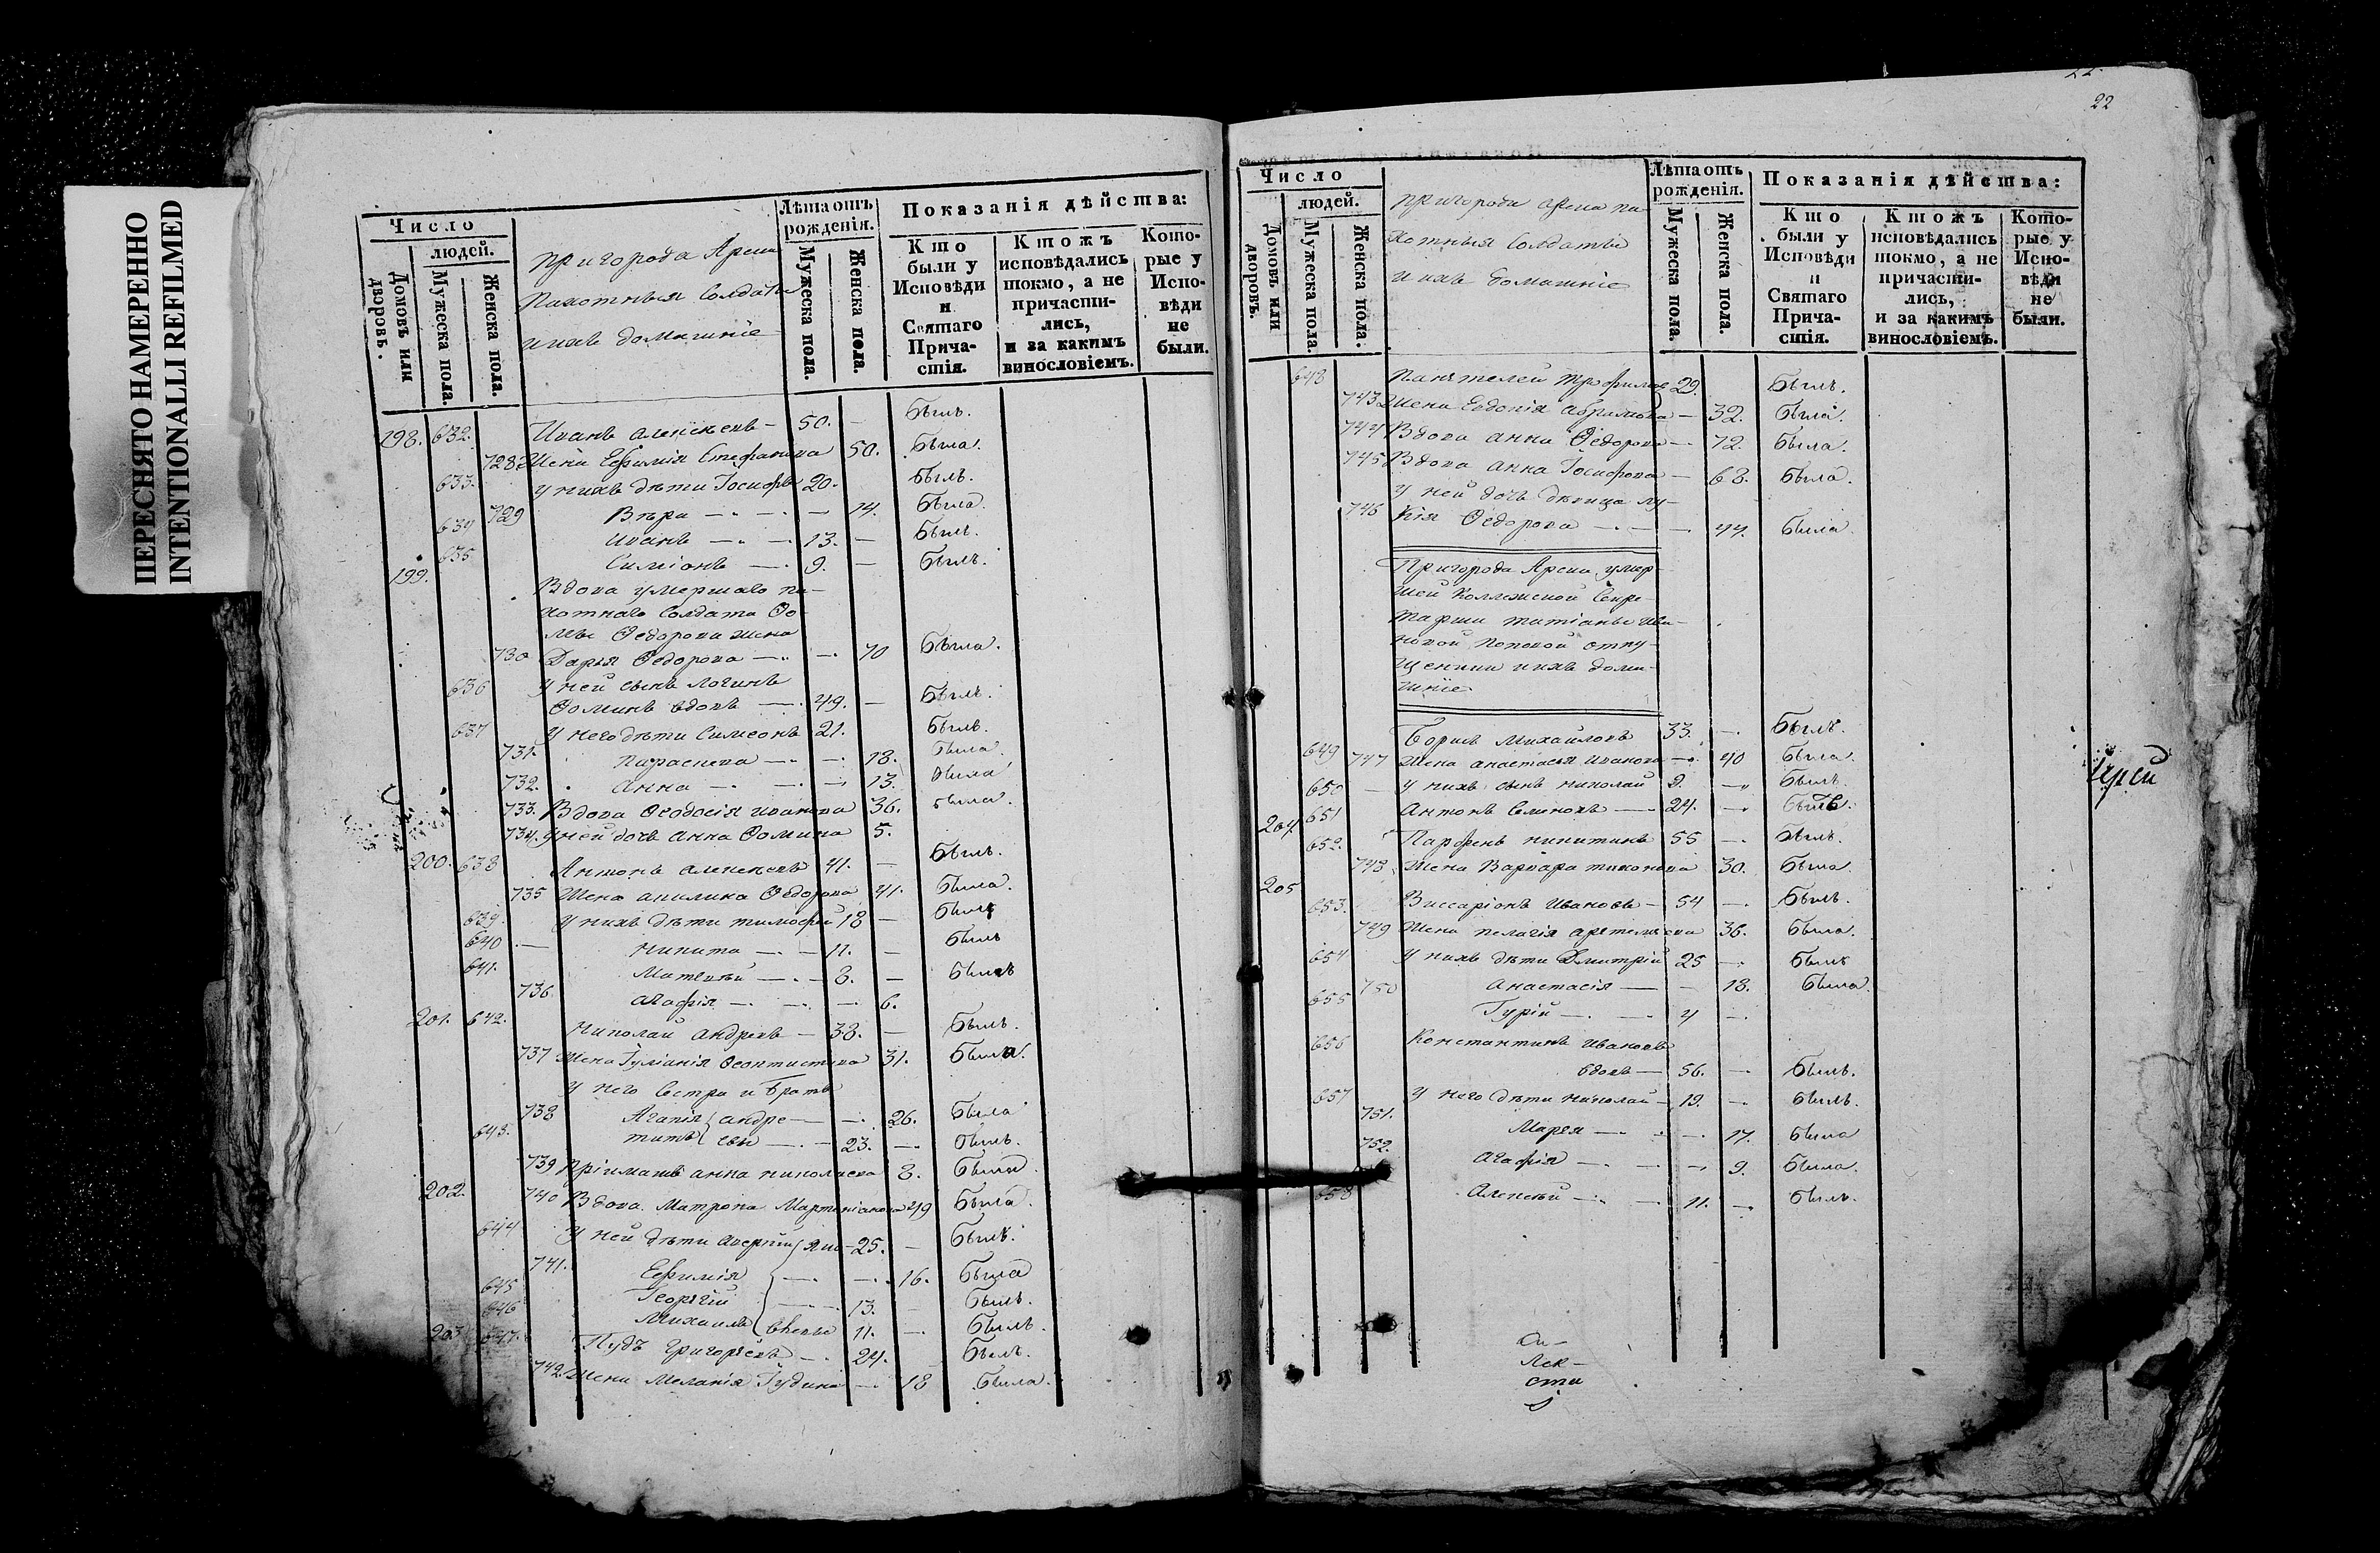 ПЕРЕСНЯТО НАМЕРЕННО
INTENTIONALLI REFILMED
Число
людей.
Домовъ или дворовъ.
Мужеска пола.
Женска пола.
пригорода Арска
Пахотныя Солдаты
и ихъ домашніе
Лѣта отъ рожденія.
Мужеска пола.
Женска пола.
Показанія дѣйства:
Кто были у Исповѣди и Святаго Причастія.
Ктожъ исповѣдались токмо, а не причастились, и за какимъ винословіемъ.
Которые у Исповѣди не были.
198. 632. Иванъ Алексѣевъ — 50. — Былъ.
728 Жена Евфимія Стефанова 50. Была.
633. У нихъ дѣти Іосифъ 20. Былъ.
729 Вѣра — 14. Была.
634 Иванъ — 13. — Былъ.
635 Симіонъ — 9. — Былъ.
199. Вдова умершаго па-
хотнаго Солдата Ѳо-
мы Ѳедорова жена
730 Дарья Ѳедорова — 70 Была.
636 У ней сынъ Логинъ
Ѳоминъ вдовъ — 49. — Былъ.
637 У него дѣти Симеонъ 21. Былъ.
731. Параскева — 18. Была
732. Анна — 13. Была
733. Вдова Ѳеодосія Иванова 36. была.
734. У ней дочь Анна Ѳомина 5.
200. 638 Антонъ Алексѣевъ 41. — Былъ.
735 Жена Акилина Ѳедорова 41. Была.
639. У нихъ дѣти Тимофей 18 — Былъ
640 — Никита — 11. — Былъ
641. Матвѣй — 8. — Былъ
736 Агафія — 6.
201. 642. Николай Андреевъ — 33. — Былъ.
737 Жена Іуліанія Ѳеоктистова 31. Была.
У него Сестра и Братъ
738 Агапія андре — 26. Была
643. Титъ евы — 23. — Былъ.
739 Пріиматъ Анна Николаева 8. Была.
202. 740 Вдова Матрона Мартиніанова 49 Была.
644 У ней дѣти Аверкій Яко — 25. — Былъ.
741. Евфимія — 16. Была
645 Георгій — 13. — Былъ.
646 Михаилъ влевы 11. — Былъ.
203 647. Іудъ Григорьевъ — 24. Былъ.
742 Жена Меланія Іудина — 18 Была.
22
Число
людей.
Домовъ или дворовъ.
Мужеска пола.
Женска пола.
пригорода Арска па-
хотныя Солдаты
и ихъ домашніе
Лѣта отъ рожденія.
Мужеска пола.
Женска пола.
Показанія дѣйства:
Кто были у Исповѣди и Святаго Причастія.
Ктожъ исповѣдались токмо, а не причастились, и за какимъ винословіемъ.
Которые у Исповѣди не были.
648 Пантелей Трофимовъ 29. Былъ.
743 Жена Евдокія Абрамова — 32. Была.
744 Вдова Анна Ѳедорова — 72. Была.
745 Вдова Анна Іосифова — 68. Была.
У ней дочь дѣвица Лу-
746 кія Ѳедорова — 44. Была
Пригорода Арска умер-
шей Коллежской Секре-
тарши Татіаны Ива-
новой Поповой отпу-
щенники и ихъ дома-
шніе
Борисъ Михайловъ 33. — Былъ.
649 747 Жена Анастасія Иванова — 40 Была.
650 — У нихъ сынъ Николай 9. — Былъ
651 Антонъ Семеновъ — 24. — Былъ.
204 652. Парфенъ Никитинъ 55 — Былъ.
748 Жена Варвара Тихонова 30. Была.
205 653. Виссаріонъ Ивановъ — 54 — Былъ.
749 Жена Пелагія Артемьева 36. Была.
654 У нихъ дѣти Дмитрій 25 — Былъ
750 Анастасія — 18. Была.
655 Гурій — 4 —
656 Константинъ Ивановъ
вдовъ — 56. — Былъ.
657 У него дѣти Николай — 19. — Былъ.
751. Марѳа — 17. Была
752. Агафія — 9. Была.
658 Алексѣй — 11. — Былъ.
Іерей